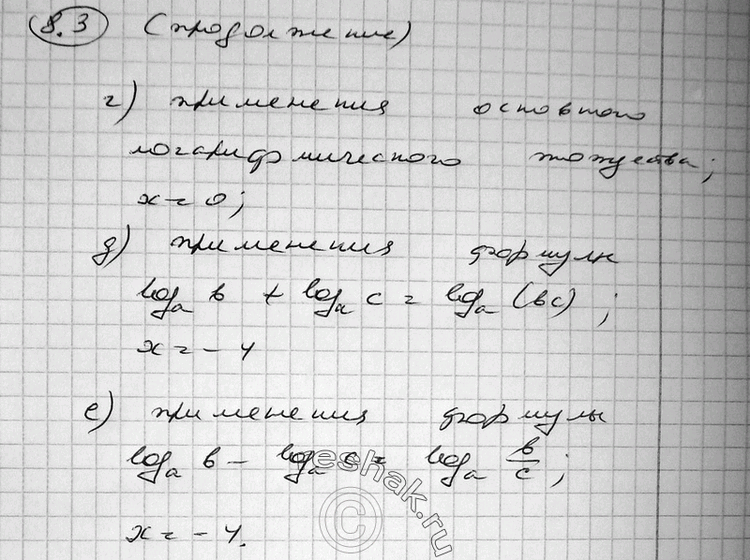 8.3 (продолжение)
г) применения основного
логарифмического тождества;
x = 0;
д) применения формулы
log_a b + log_a c = log_a (bc);
x = -4
е) применения формулы
log_a b - log_a c = log_a b/c;
x = -4.
©reshak.ru